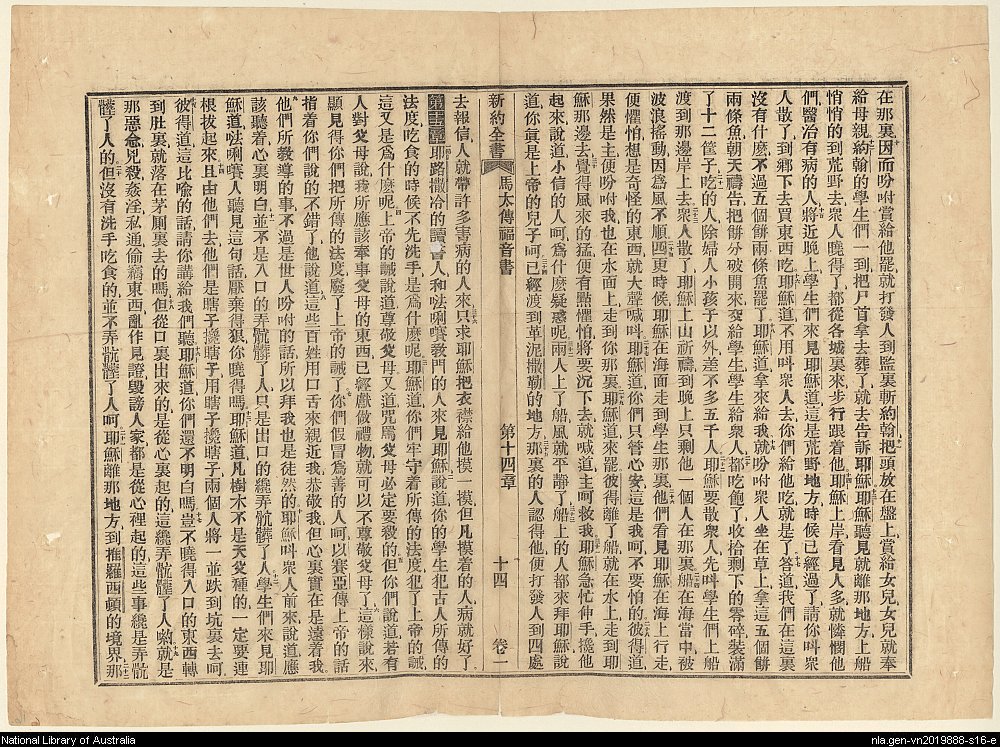 在那裏因而吩咐賞給他罷就打發人到監裏斬約翰把頭放在盤上賞給女兒女兒就奉
給母親約翰的學生們一到把尸首拿去葬了就去告訴耶穌耶穌聽見就離那地方上船
悄悄的到荒野去衆人曉得了都從各城裏來步行跟着他耶穌上岸看見人多就憐憫他
們醫治有病的人將近晚上學生們來見耶穌道這是荒野地方時候已經過了請你呌衆
人散了到鄉下去買東西吃耶穌道不用呌衆人去你們給他吃就是了答道我們在這裏
沒有什麽不過五個餅兩條魚罷了耶穌道拿來給我就吩咐衆人坐在草上拿這五個餅
兩條魚朝天禱告把餅分破開來交給學生學生給衆人都吃飽了收拾剩下的零碎裝滿
了十二筐子吃的人除婦人小孩子以外差不多五千人耶穌要散衆人先呌學生們上船
渡到那邊岸上去衆人散了耶穌上山祈禱到晚上只剩他一個人在那裏船在海當中被
波浪搖動因爲風不順四更時候耶穌在海面走到學生那裏他們看見耶穌在海上行走
便懼怕想是奇怪的東西就大聲喊呌耶穌道你們只管心安這是我呵不要怕的彼得道
果然是主便吩咐我也在水面上走到你那裏耶穌道來罷彼得離了船就在水上走到耶
穌那邊去覺得風來的猛便有點懼怕將要沉下去就喊道主呵救我耶穌急忙伸手攙他
起來說道小信的人呵爲什麽疑惑呢兩人上了船風就平靜了船上的人都來拜耶穌說
道你眞是上帝的兒子呵已經渡到革泥撒勒的地方那裏的人認得他便打發人到四處
新約全書 馬太傳福音書 第十四章 十四 卷一
去報信人就帶許多害病的人來只求耶穌把衣襟給他摸一摸但凡摸着的人病就好了
第十五章耶路撒冷的讀書人和𠵽唎賽教門的人來見耶穌說道你的學生犯古人所傳的
法度吃食的時候不先洗手是爲什麽呢耶穌道你們牢守着所傳的法度犯了上帝的誡
這又是爲什麽呢上帝的誡說道尊敬父母又道咒罵父母必定要殺的但你們說道若有
人對父母說我所應該奉事父母的東西已經獻做禮物就可以不尊敬父母了這樣說來
顯見得你們把所傳的法度廢了上帝的誡了你們假冒爲善的人呵以賽亞傳上帝的話
指着你們說的不錯了他說道這些百姓用口舌來親近我恭敬我但心裏實在是遠着我
他們所教導的事不過是世人吩咐的話所以拜我也是徒然的耶穌呌衆人前來說道應
該聽着心裏明白並不是入口的弄骯髒了人只是出口的纔弄骯髒了人學生們來見耶
穌道𠵽唎賽人聽見這句話厭棄得狠你曉得嗎耶穌道凡樹木不是天父種的一定要連
根拔起來且由他們去他們是瞎子攙瞎子用瞎子攙瞎子兩個人將一並跌到坑裏去呵
彼得道這比喩的話請你講給我們聽耶穌道你們還不明白嗎豈不曉得入口的東西轉
到肚裏就落在茅厠裏去的嗎但從口裏出來的是從心裏起的這纔弄骯髒了人喲就是
那惡念兇殺姦淫私通偷竊東西亂作見證毀謗人家都是從心裡起的這些事纔是弄骯
髒了人的但沒有洗手吃食的並不弄骯髒了人呵耶穌離那地方到推羅西頓的境界那
National Library of Australia
nla.gen-vn2019888-s16-e